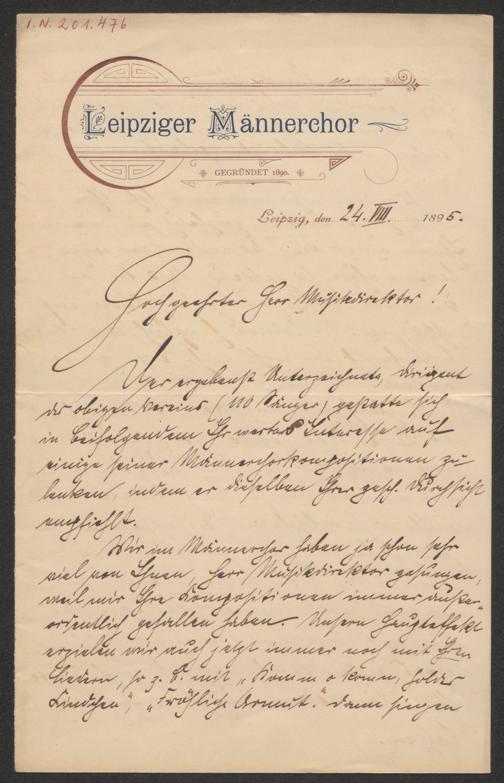 I.N. 201.476
Leipziger Männerchor
GEGRÜNDET 1890.
Leipzig, den 24. VIII. 1895.
Hochgeehrter Herr Musikdirektor!
Der ergebenst Unterzeichnete, Dirigent
des obigen Vereins (110 Sänger) gestatte sich
in beifolgendem Ihr wertes Interesse auf
einige seiner Männerchorkompositionen zu
lenken, indem er dieselben Ihrer gefl. Durchsicht
empfiehlt.
Wir im Männerchor haben ja schon sehr
viel von Ihnen, Herr Musikdirektor gesungen,
weil mir Ihre Kompositionen immer außer-
ordentlich gefallen haben. Unsern Haupteffekt
erzielen wir auch jetzt immer noch mit Ihren
Liedern, so z. B. mit „Komm o komm, holdes
Kindchen", „Fröhliche Armut." Dann singen